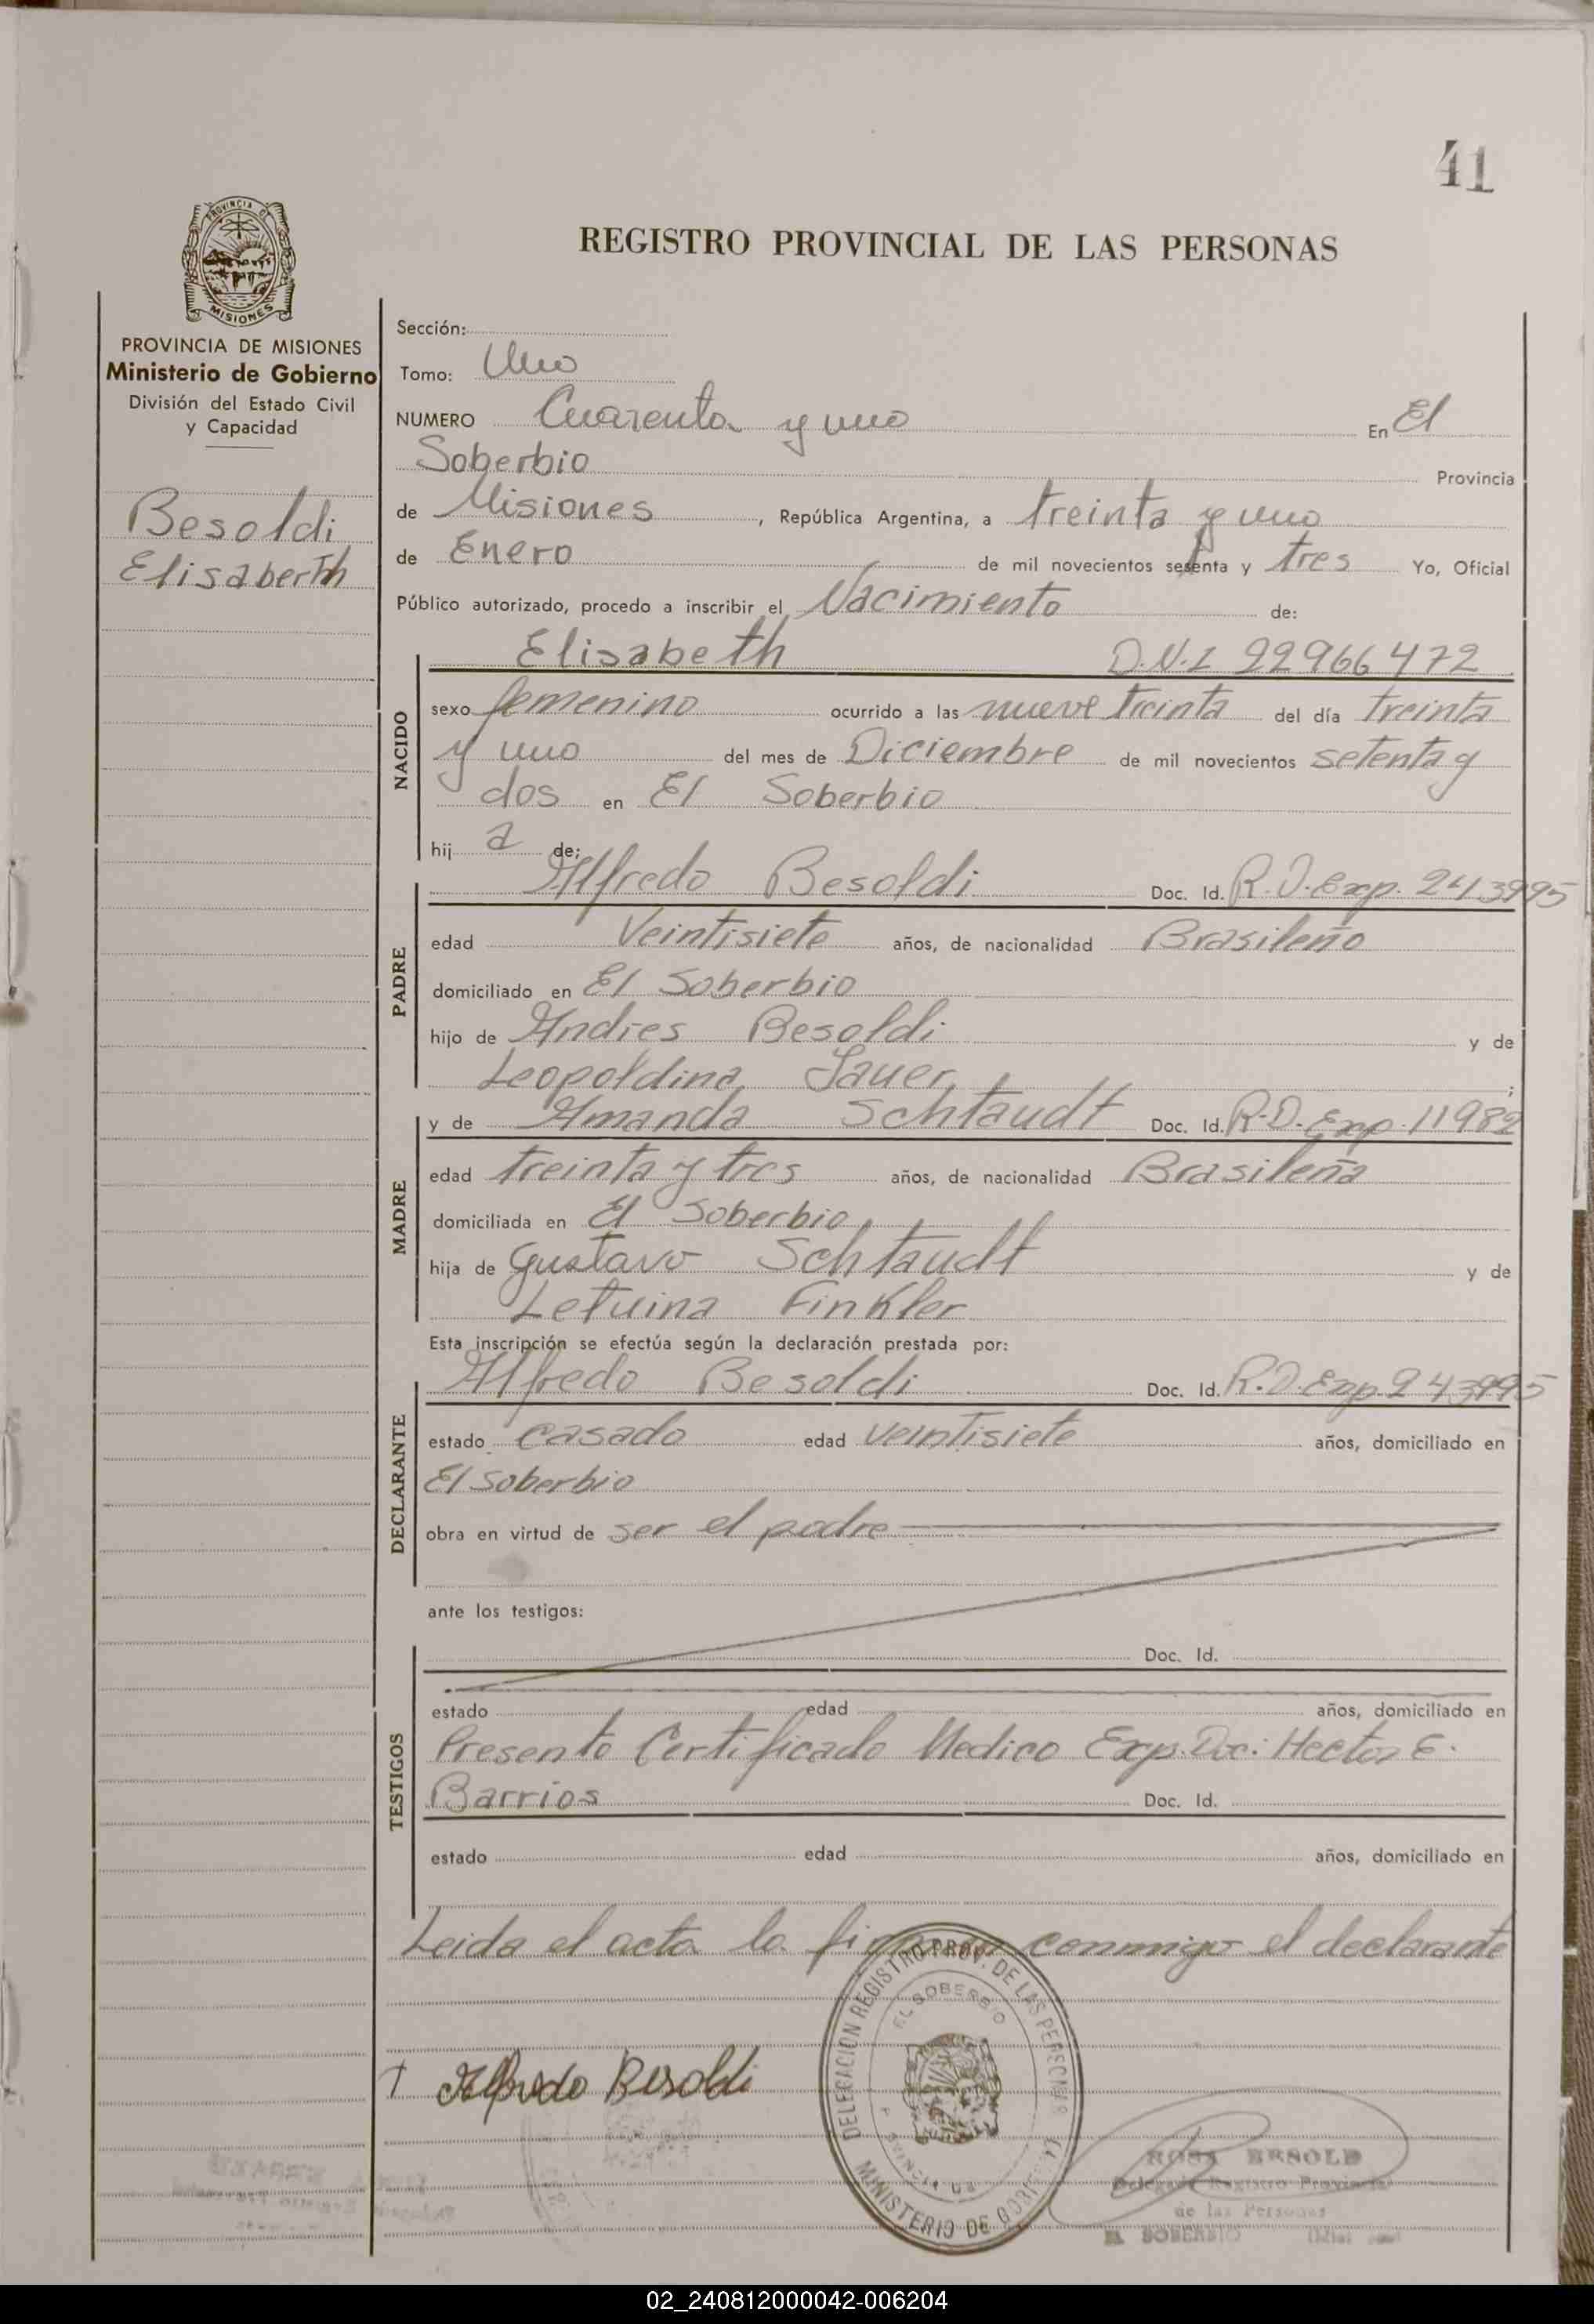 41
PROVINCIA DE
MISIONES
REGISTRO PROVINCIAL DE LAS PERSONAS
PROVINCIA DE MISIONES
Ministerio de Gobierno
División del Estado Civil
y Capacidad
Besoldi
Elisaberth
Sección:
Tomo: Uno
NUMERO Cuarenta y uno En El
Soberbio Provincia
de Misiones, República Argentina, a treinta y uno
de Enero de mil novecientos setenta y tres Yo, Oficial
Público autorizado, procedo a inscribir el Nacimiento de:
NACIDO
Elisabeth D.N.I 22966472
sexo femenino ocurrido a las nueve treinta del día treinta
y uno del mes de Diciembre de mil novecientos setenta y
dos en El Soberbio
hija de:
PADRE
Alfredo Besoldi Doc. Id. R.D. Exp. 243995
edad Veintisiete años, de nacionalidad Brasileño
domiciliado en El Soberbio
hijo de Andres Besoldi y de
Leopoldina Sauer ;
MADRE
y de Amanda Schtaudt Doc. Id. R.D. Exp. 11982
edad treinta y tres años, de nacionalidad Brasileña
domiciliada en El Soberbio
hija de Gustavo Schtaudt y de
Letuina Finkler
Esta inscripción se efectúa según la declaración prestada por:
DECLARANTE
Alfredo Besoldi Doc. Id. R.D. Exp. 243995
estado casado edad veintisiete años, domiciliado en
El Soberbio
obra en virtud de ser el padre
ante los testigos:
TESTIGOS
Doc. Id.
estado edad años, domiciliado en
Presento Certificado Medico Exp. Doc: Hector E.
Barrios Doc. Id.
estado edad años, domiciliado en
Leida el acta la firma conmigo el declarante
Alfredo Besoldi
DELEGACION REGISTRO PROV. DE LAS PERSONAS
EL SOBERBIO
MINISTERIO DE GOBIERNO
ROSA
Delegada Registro Provincial
de las Personas
EL SOBERBIO
02_240812000042-006204